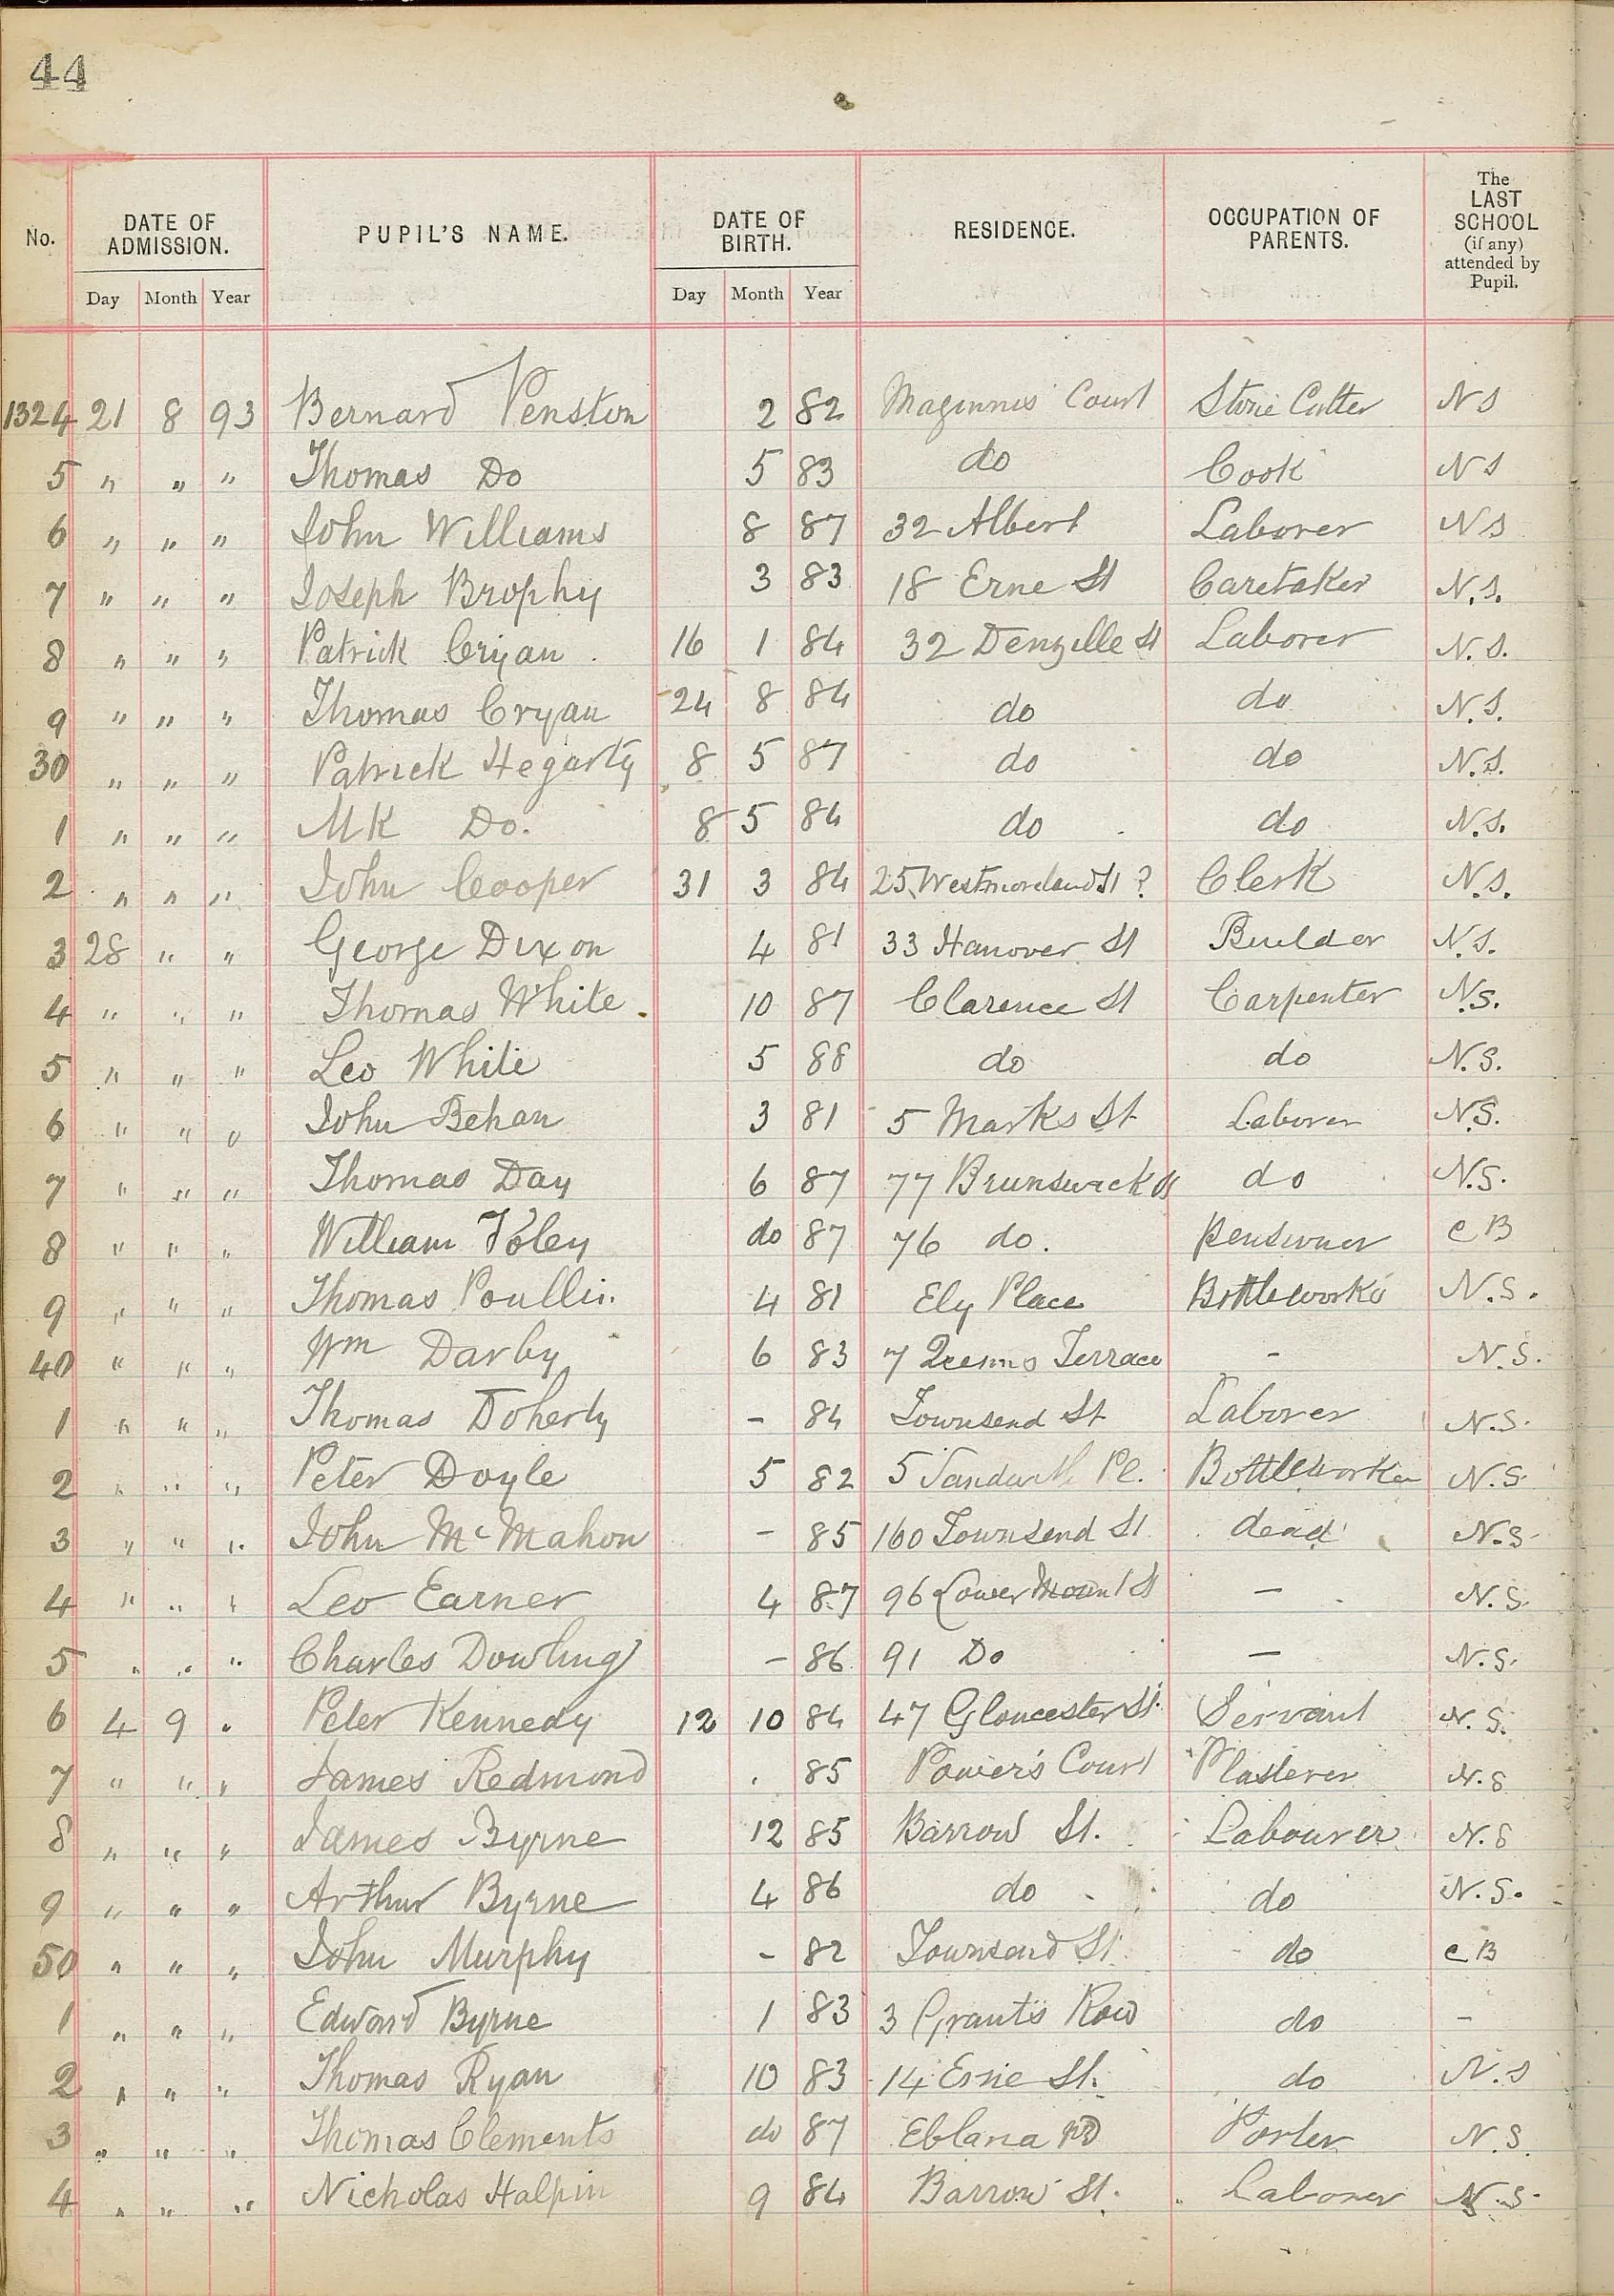 44
No. DATE OF ADMISSION. PUPIL'S NAME. DATE OF BIRTH. RESIDENCE. OCCUPATION OF PARENTS. The LAST SCHOOL (if any) attended by Pupil.
Day Month Year Day Month Year
1324 21 8 93 Bernard Penston 2 82 Maginnis Court Stone Cutter N S
5 " " " Thomas Do 5 83 do Cook N S
6 " " " John Williams 8 87 32 Albert Laborer N S
7 " " " Joseph Brophy 3 83 18 Erne St Caretaker N.S.
8 " " " Patrick Cryan 16 1 84 32 Denzille St Laborer N.S.
9 " " " Thomas Cryan 24 8 84 do do N.S.
30 " " " Patrick Hegarty 8 5 87 do do N.S.
1 " " " MK Do. 8 5 84 do do N.S.
2 " " " John Cooper 31 3 84 25 Westmoreland St ? Clerk N.S.
3 28 " " George Dixon 4 81 33 Hanover St Builder N.S.
4 " " " Thomas White 10 87 Clarence St Carpenter N.S.
5 " " " Leo White 5 88 do do N.S.
6 " " " John Behan 3 81 5 Marks St Laborer N.S.
7 " " " Thomas Day 6 87 77 Brunswick St do N.S.
8 " " " William Foley do 87 76 do. Pensioner C B
9 " " " Thomas 4 81 Ely Place Bottleworks N.S.
40 " " " Wm Darby 6 83 7 Queens Terrace - N.S.
1 " " " Thomas Doherty - 84 Townsend St Laborer N.S.
2 " " " Peter Doyle 5 82 5 Pl. Bottleworker N.S
3 " " " John McMahon - 85 160 Townsend St dead N.S
4 " " " Leo Earner 4 87 96 Lower Mount St - N.S.
5 " " " Charles Dowling - 86 91 Do - N.S.
6 4 9 " Peter Kennedy 12 10 84 47 Gloucester St. Servant N.S.
7 " " " James Redmond . 85 Power's Court Plasterer N.S
8 " " " James Byrne 12 85 Barrow St. Labourer N.S
9 " " " Arthur Byrne 4 86 do do N.S.
50 " " " John Murphy - 82 Townsend St. do C B
1 " " " Edward Byrne 1 83 3 Grant's Row do -
2 " " " Thomas Ryan 10 83 14 Erne St. do N.S
3 " " " Thomas Clements do 87 Eblana Porter N.S.
4 " " " Nicholas Halpin 9 84 Barrow St. Laborer N.S.